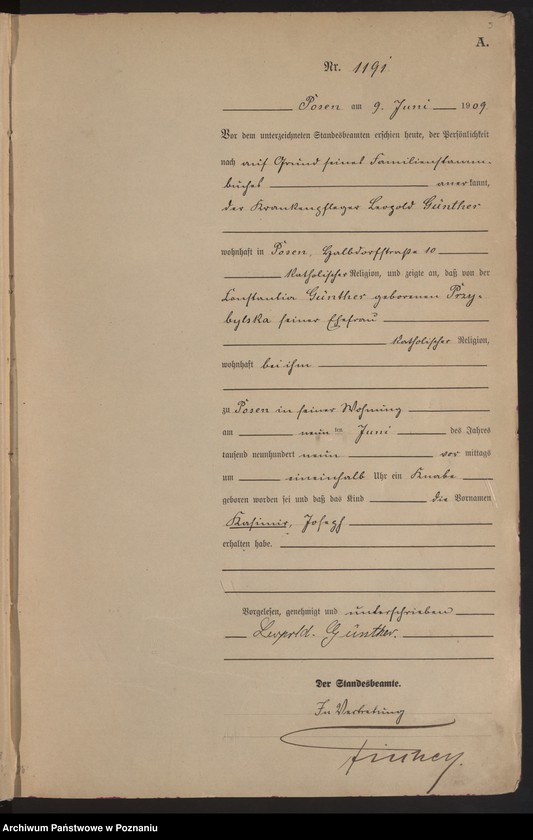 A.
Nr. 1191
Posen am 9. Juni 1909
Vor dem unterzeichneten Standesbeamten erschien heute, der Persönlichkeit
nach auf Grund seines Familienstamm-
buches anerkannt,
der Krankenpfleger Leopold Günther
wohnhaft in Posen, Halbdorfstraße 10
katholischer Religion, und zeigte an, daß von der
Constantia Günther geborenen Przy-
bylska seiner Ehefrau
katholischer Religion,
wohnhaft bei ihm
zu Posen in seiner Wohnung
am neunten Juni des Jahres
tausend neunhundert neun vormittags
um eineinhalb Uhr ein Knabe
geboren worden sei und daß das Kind die Vornamen
Kasimir, Joseph
erhalten habe.
Vorgelesen, genehmigt und unterschrieben
Leopold Günther.
Der Standesbeamte.
In Vertretung
Archiwum Państwowe w Poznaniu